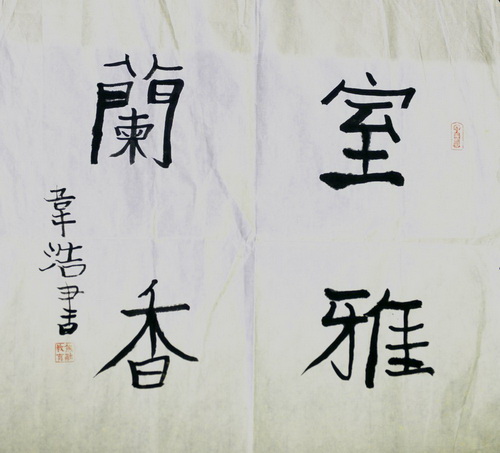 室雅
蘭香
韋浩書